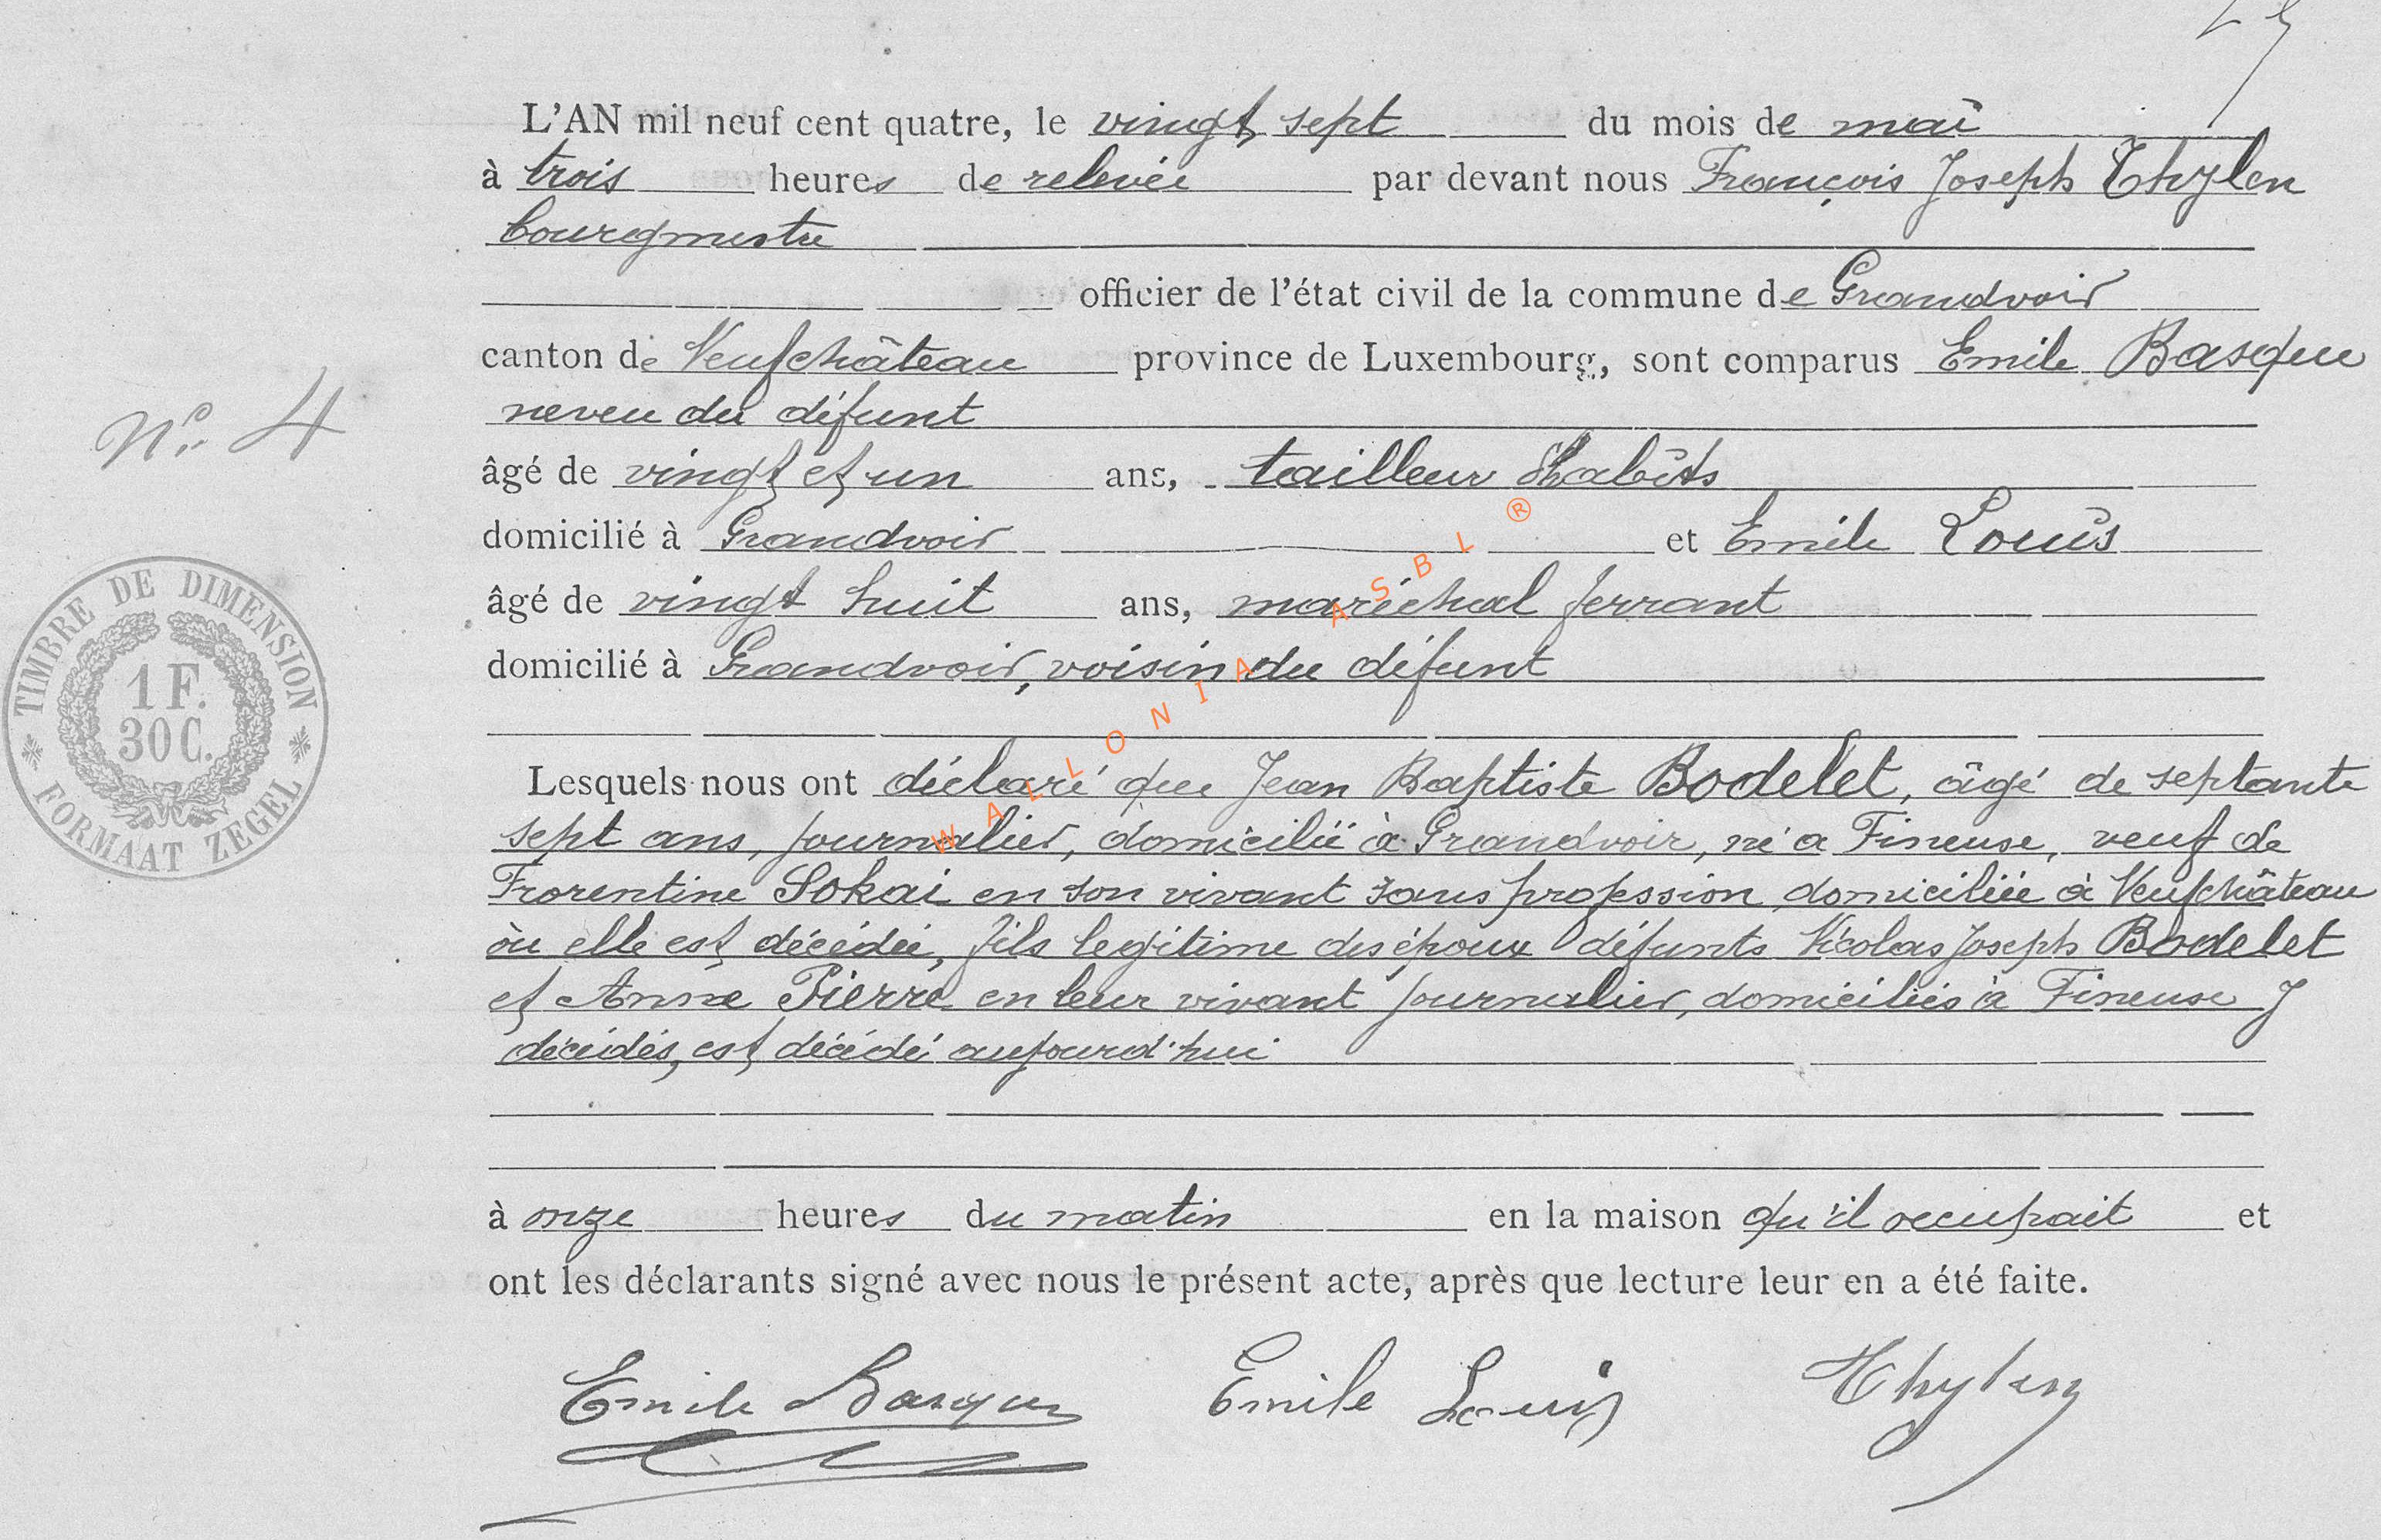 L'AN mil neuf cent quatre, le vingt sept du mois de mai
à trois heures de relevée par devant nous François Joseph Thylen
bourgmestre
officier de l'état civil de la commune de Grandvoir
canton de Neufchâteau province de Luxembourg, sont comparus Emile Basque
N° 4
neveu du défunt
âgé de vingt et un ans, tailleur d'habits
domicilié à Grandvoir et Emile Louis
âgé de vingt huit ans, maréchal ferrant
domicilié à Grandvoir, voisin du défunt
TIMBRE DE DIMENSION
1 F.
30 C.
FORMAAT ZEGEL
WALLONIA ASBL ®
Lesquels nous ont déclaré que Jean Baptiste Bodelet, âgé de septante
sept ans, journalier, domicilié à Grandvoir, né a Fineuse, veuf de
Frorentine Sokai en son vivant sans profession domiciliée à Neufchâteau
où elle est décédée, fils legitime des époux défunts Nicolas Joseph Bodelet
et Anne Pierre en leur vivant journalier, domiciliés à Fineuse y
décédés, est décédé aujourd'hui
à onze heures du matin en la maison qu'il occupait et
ont les déclarants signé avec nous le présent acte, après que lecture leur en a été faite.
Emile Basque Emile Louis Thylen